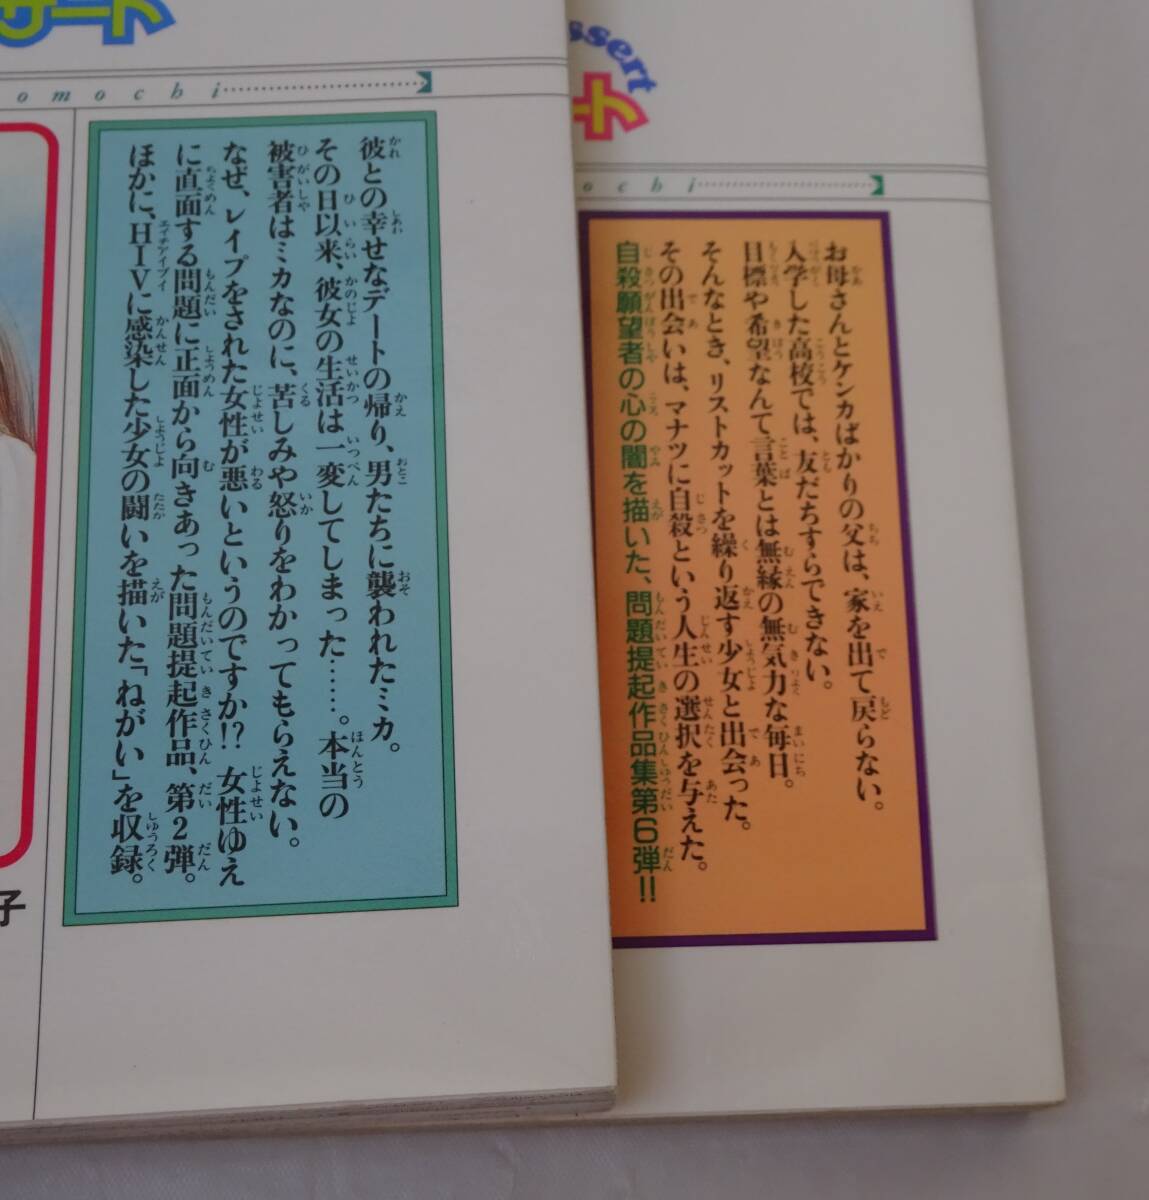 ssert
omochi
ochi
デザ
彼との幸せなデートの帰り、男たちに襲われたミカ。
その日以来、彼女の生活は一変してしまった……。本当の
被害者はミカなのに、苦しみや怒りをわかってもらえない。
なぜ、レイプをされた女性が悪いというのですか!? 女性ゆえ
に直面する問題に正面から向きあった問題提起作品、第2弾。
ほかに、HIVに感染した少女の闘いを描いた「ねがい」を収録。
子
お母さんとケンカばかりの父は、家を出て戻らない。
入学した高校では、友だちすらできない。
目標や希望なんて言葉とは無縁の無気力な毎日。
そんなとき、リストカットを繰り返す少女と出会った。
その出会いは、マナツに自殺という人生の選択を与えた。
自殺願望者の心の闇を描いた、問題提起作品集第6弾!!